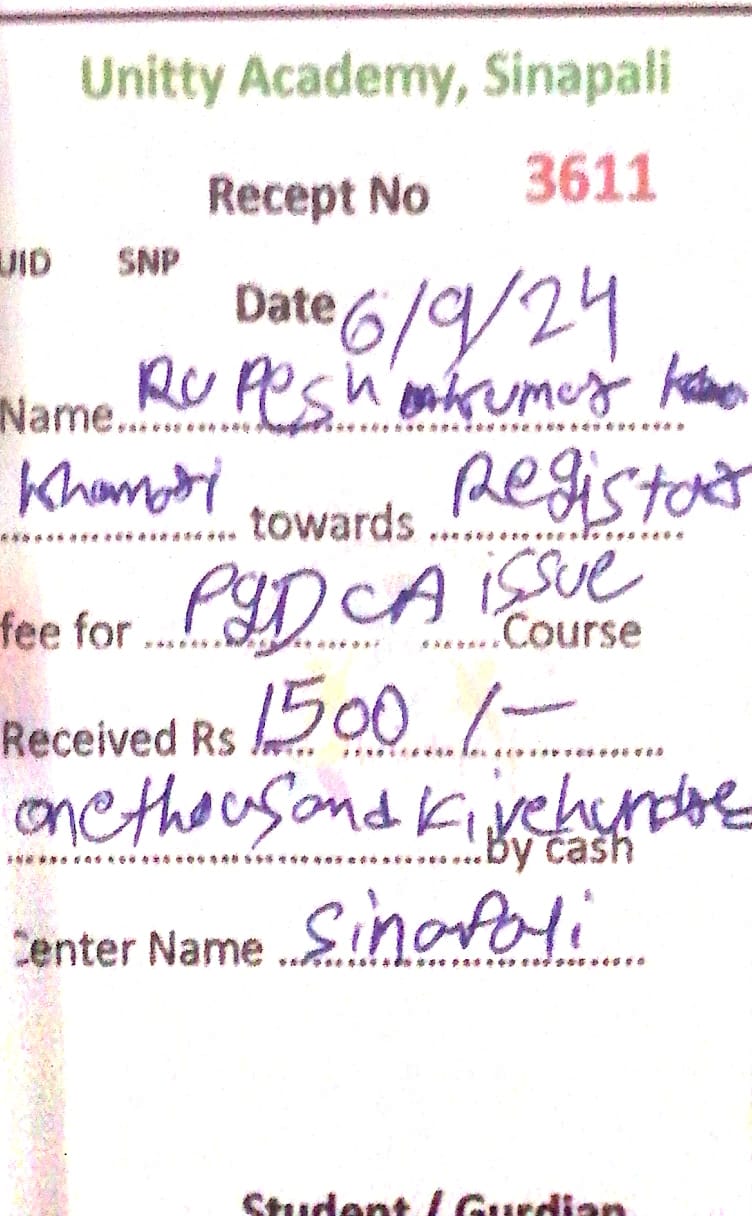 Unitty Academy, Sinapali
Recept No 3611
UID SNP
Date 6/9/24
Name Rupesh kumar
Khamari towards Registor
fee for PgDCA issue Course
Received Rs 1500 /-
one thousand Five hundre by cash
Center Name Sinapali
Student / Gurdian